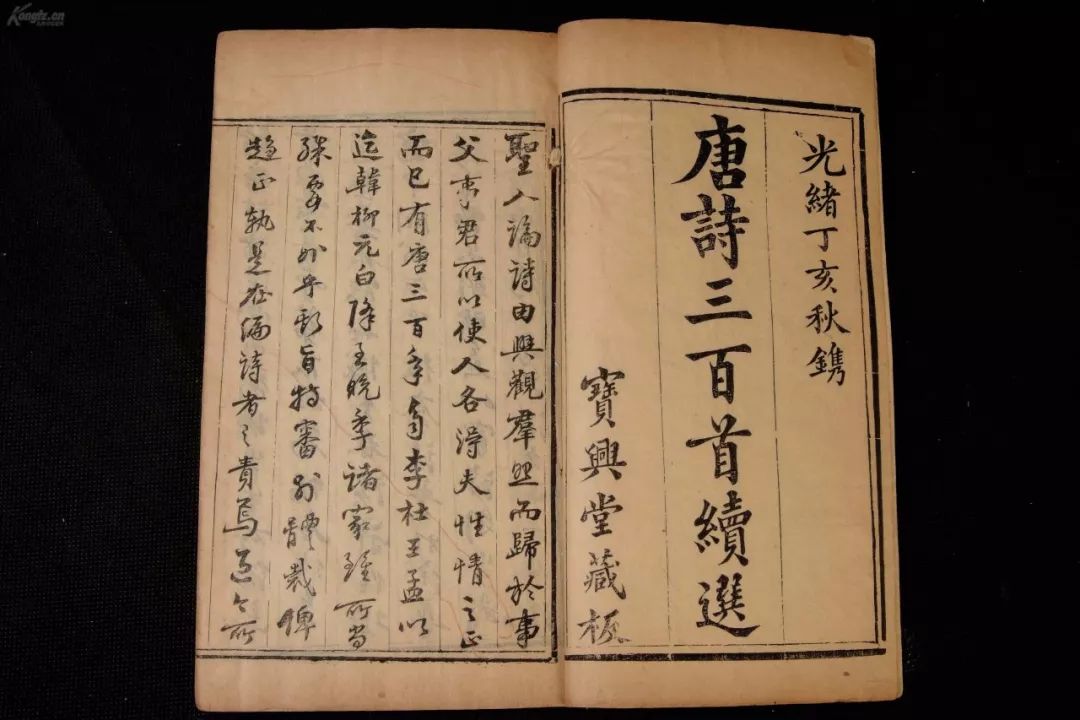 Kongfz.cn
光緒丁亥秋鐫
唐詩三百首續選
寶興堂藏板
聖人論詩由興觀羣怨而歸於事
父事君所以使人各得夫性情之正
而已有唐三百年自李杜王孟以
迄韓柳元白降至晚季諸家雖所尚
殊要不外乎斯旨特審別體裁俾
趨正是在編詩者之責焉所